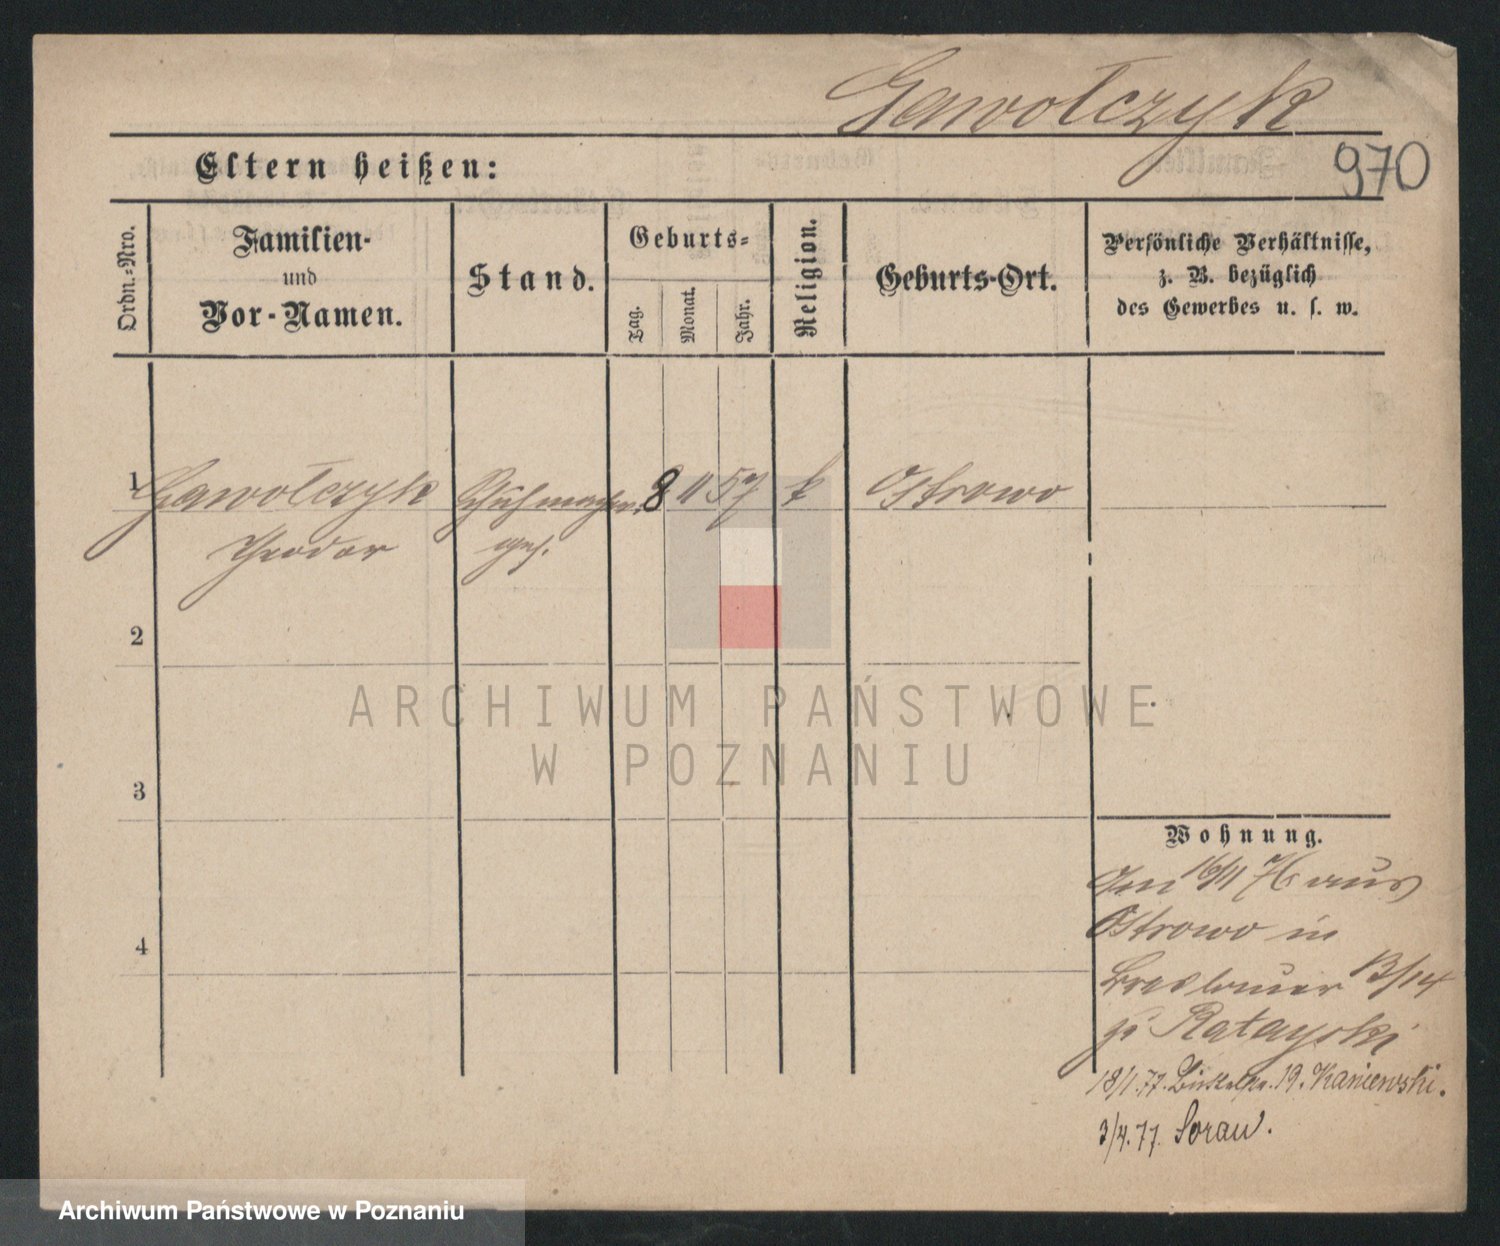 Gawołczyk
970
Eltern heißen:
Ordn.-Nro.
Familien-
und
Vor-Namen.
Stand.
Geburts-
Tag.
Monat.
Jahr.
Religion.
Geburts-Ort.
Persönliche Verhältnisse,
z. B. bezüglich
des Gewerbes u. s. w.
1 Gawołczyk Schuhmacher 8 11 57 k Ostrowo
Theodor ges.
2
3
4
Wohnung.
Am 16/11 76 aus
Ostrowo in
Breslauer 13/14
Ratayski
18/1. 77. 19. Kaniewski.
3/4. 77. Sorau.
ARCHIWUM PAŃSTWOWE
W POZNANIU
Archiwum Państwowe w Poznaniu